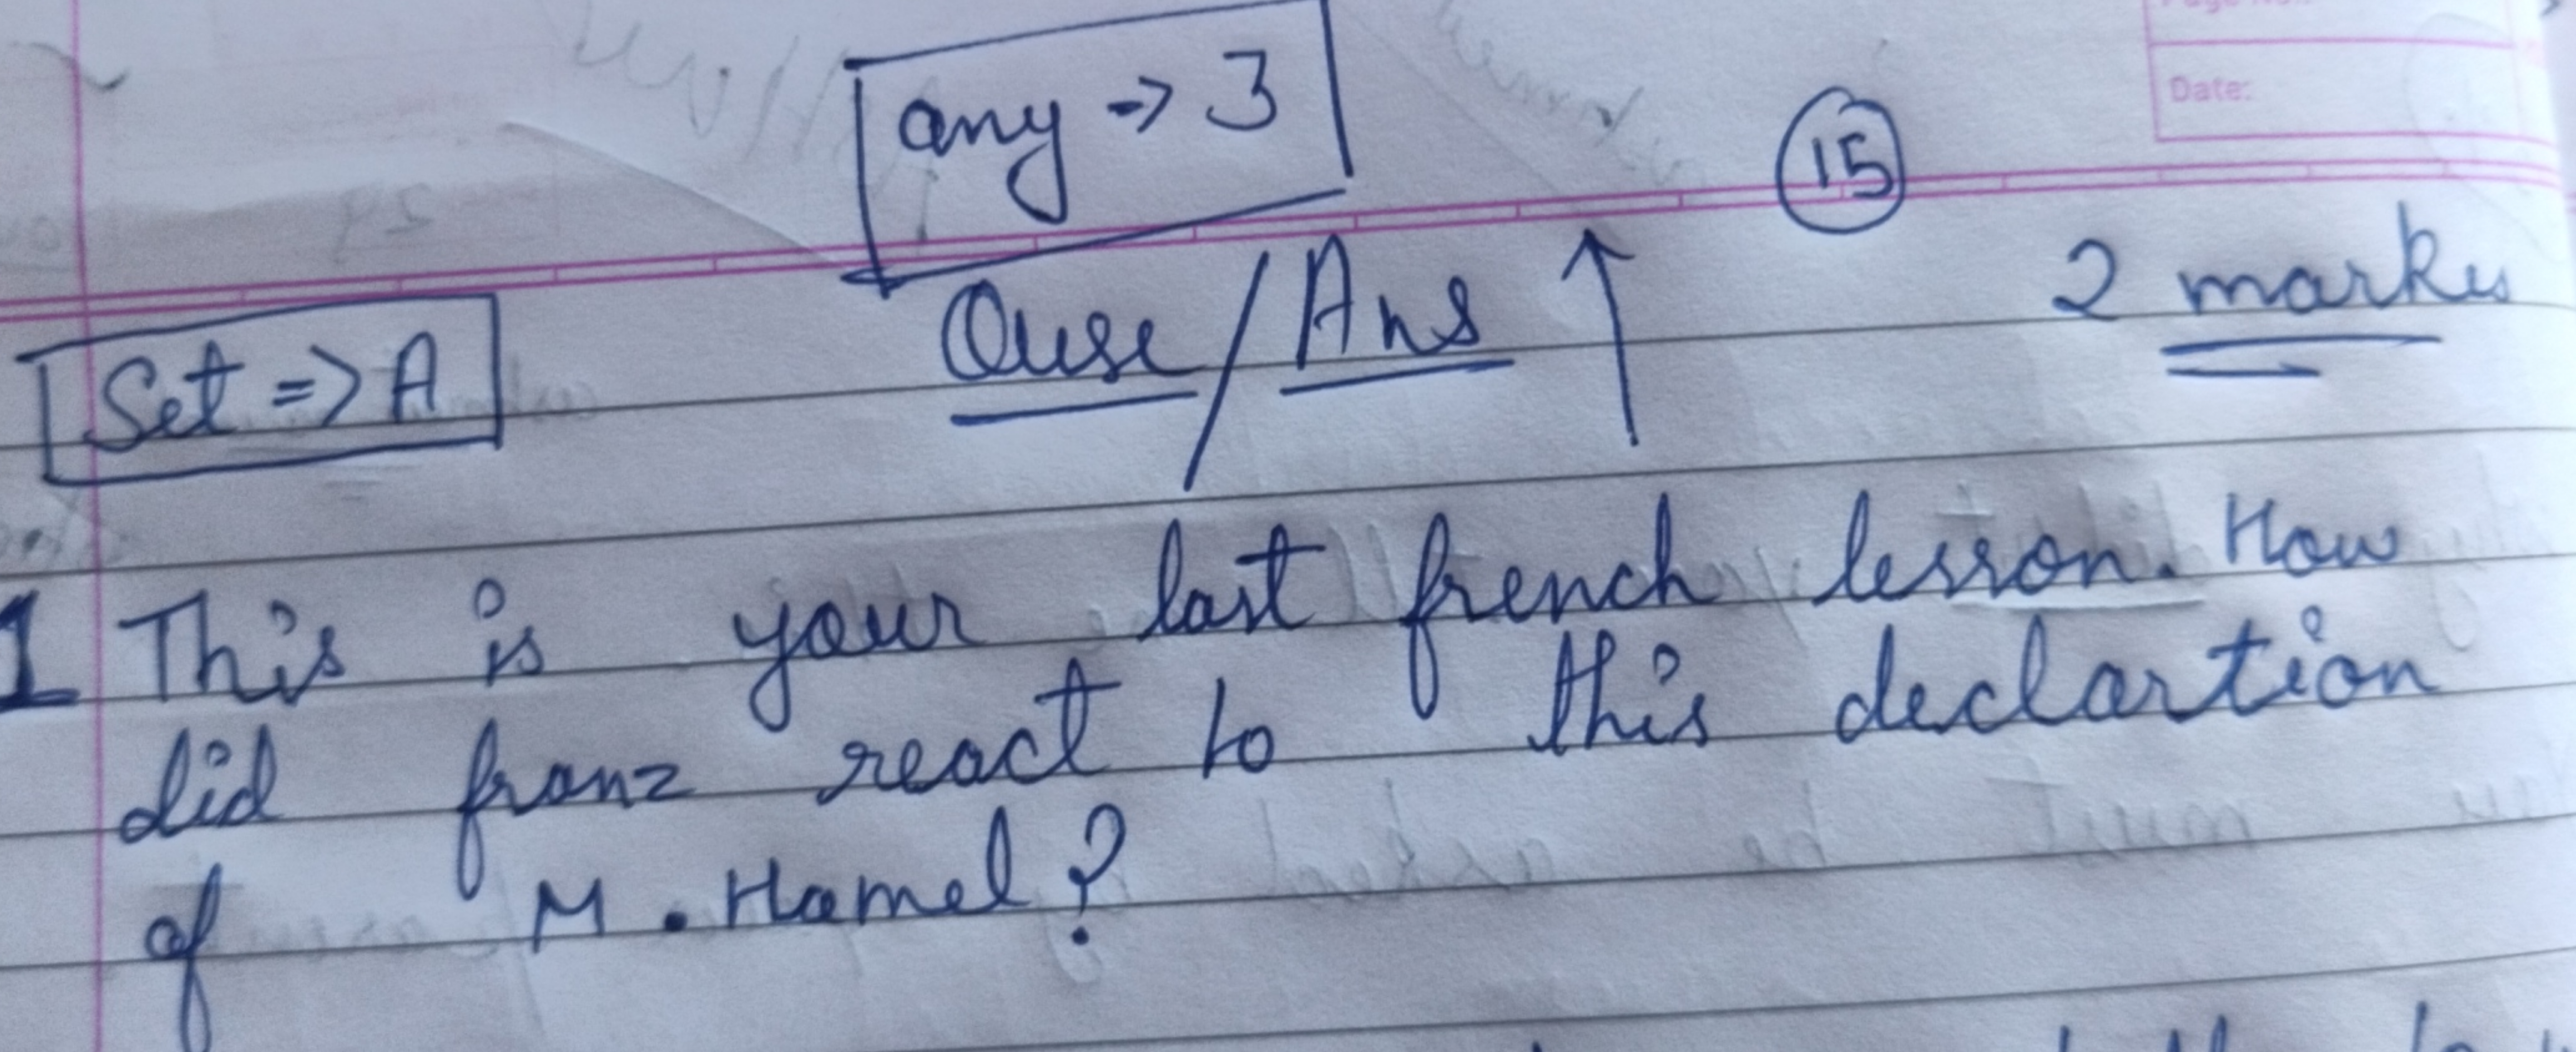 Date:
any -> 3
15
Set => A
Quse / Ans ↑
2 marks
1 This is your last french lesson. How
did franz react to this declartion
of M. Hamel?